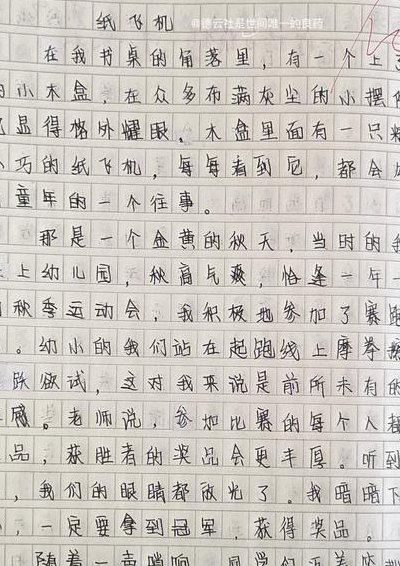 纸飞机
@德云社是世间唯一的良药
在我书桌的角落里，有一个上了
的小木盒，在众多布满灰尘的小摆
显得格外耀眼。木盒里面有一只精
巧的纸飞机，每每看到它，都会
童年的一个往事。
那是一个金黄的秋天，当时的我
上幼儿园，秋高气爽，恰逢一年一
的秋季运动会，我积极地参加了赛跑
。幼小的我们站在起跑线上摩拳擦
跃欲试，这对我来说是前所未有的
感。老师说，参加比赛的每个人都
品，获胜者的奖品会更丰厚。听到
，我们的眼睛都放光了。我暗暗下
，一定要拿到冠军，获得奖品。
随着一声哨响，同学们